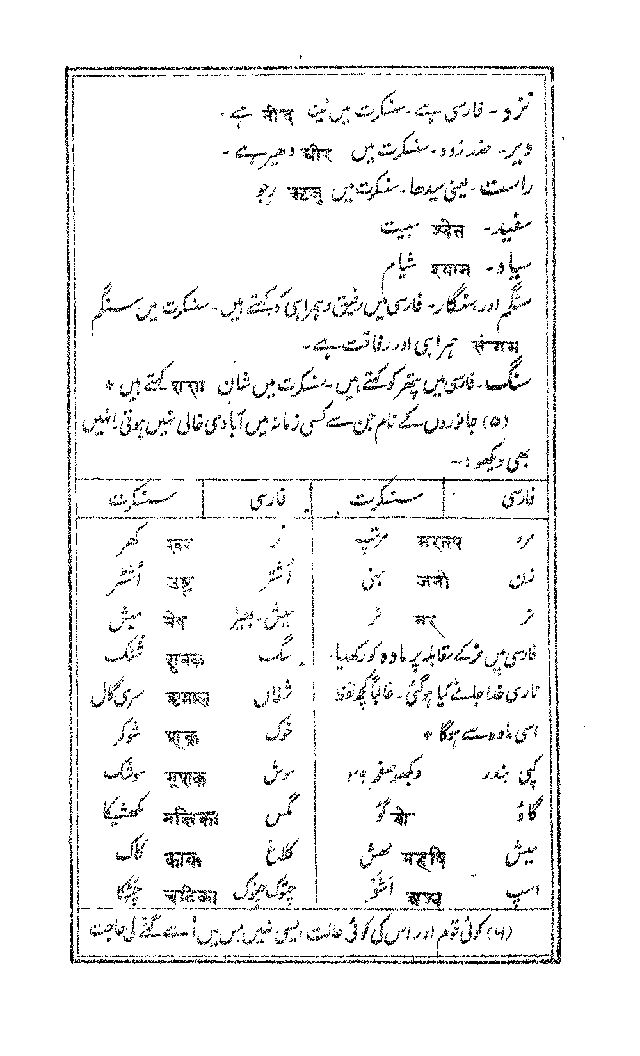 نزد - فارسی ہے - سنسکرت میں नीच ہے -
دیر - ضد زود - سنسکرت میں धीर دھیر ہے -
راست - یعنی سیدھا - سنسکرت میں رجو
سفید - श्वेत سیت
سیاہ - श्याम شیام
سنگم اور ہنگار - فارسی میں رفیق و ہمراہی کو کہتے ہیں - سنسکرت میں سنگم
संगम ہمراہی اور رفاقت ہے -
سنگ - فارسی میں پتھر کو کہتے ہیں - سنسکرت میں شان शाण کہتے ہیں *
(۵) جانوروں کے نام جن سے کسی زمانہ میں آبادی خالی نہیں ہوتی انہیں
بھی دیکھو :-
فارسی سنسکرت فارسی سنسکرت
مرد मरतप مرتپ خر खर کھر
زن जनी جنی اُشتر उष्ट्र اُشٹر
نر नर نر میش - بھیڑ मेष میش
فارسی میں نر کے مقابلہ پر مادہ کو رکھیا - سگ शुनक شنک
ناری خدا جانے کیا ہوگئی - غالباً کچھ لفظ شغال सृगाल سری گال
اسی مادہ سے ہوگا * خوک शूकर شوکر
کپی بندر دیکھو صفحہ ۲۹ موش मूषक موشک
گاؤ गो گو مگس मक्षिका مکھشیکا
میش महिष مہش کلاغ काक کاک
اسپ अश्व اَشْو چغوک चटिका چٹکا
(۶) کوئی قوم اور اس کی کوئی حالت ایسی نہیں جس میں اُسے گننے کی حاجت